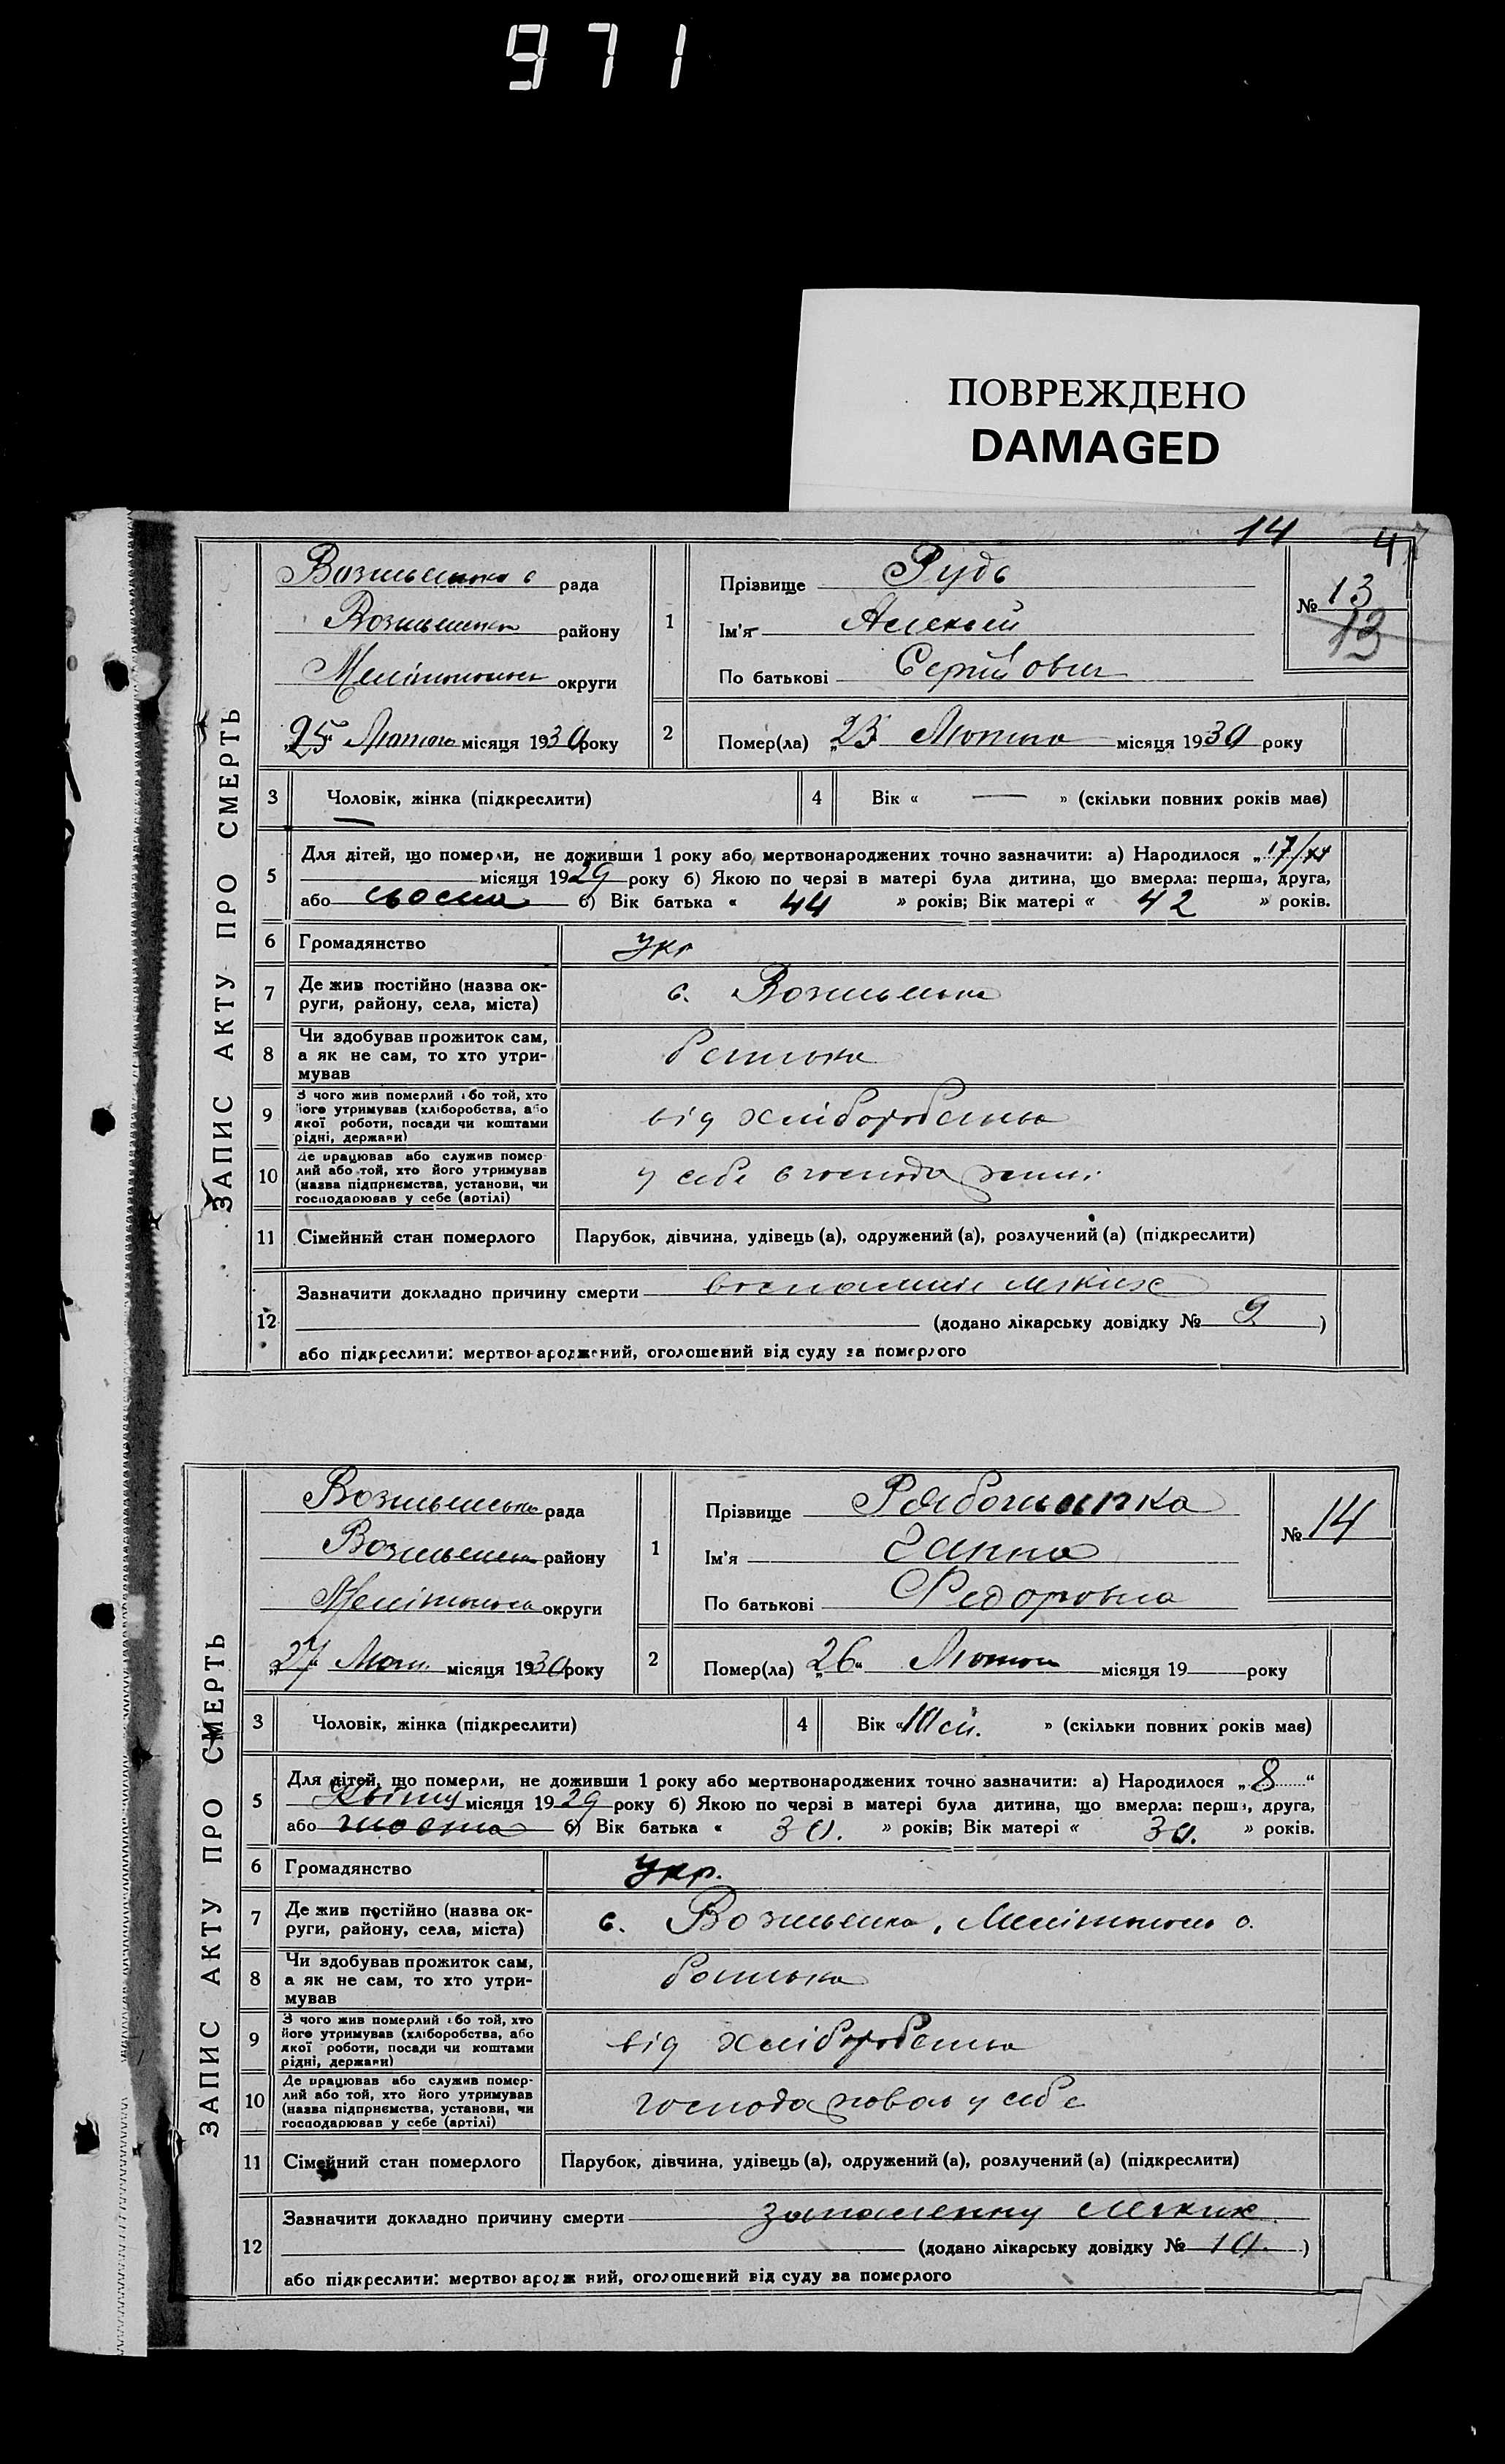 971
ПОВРЕЖДЕНО
DAMAGED
14
ЗАПИС АКТУ ПРО СМЕРТЬ
рада
району
округи
"25" Лютого місяця 1930 року
1
Прізвище Рудь
Ім'я Алексей
По батькові
№ 13
13
2
Помер(ла) "23" Лютого місяця 1930 року
3 Чоловік, жінка (підкреслити)
4 Вік « — » (скільки повних років має)
5
Для дітей, що померли, не доживши 1 року або мертвонароджених точно зазначити: а) Народилося „17/XI
місяця 1929 року б) Якою по черзі в матері була дитина, що вмерла: перша, друга,
або в) Вік батька « 44 » років; Вік матері « 42 » років.
6 Громадянство Укр
7 Де жив постійно (назва ок-
руги, району, села, міста)
с.
8 Чи здобував прожиток сам,
а як не сам, то хто утри-
мував
батька
9 З чого жив померлий або той, хто
його утримував (хліборобства, або
якої роботи, посади чи коштами
рідні, держави)
від хліборобства
10 Де працював або служив помер-
лий або той, хто його утримував
(назва підприємства, установи, чи
господарював у себе (артілі)
у себе в
11 Сімейний стан померлого Парубок, дівчина, удівець (а), одружений (а), розлучений (а) (підкреслити)
12
Зазначити докладно причину смерти легких
(додано лікарську довідку № 9)
або підкреслити: мертвонароджений, оголошений від суду за померлого
ЗАПИС АКТУ ПРО СМЕРТЬ
рада
району
округи
"27" Лют. місяця 1930 року
1
Прізвище Рябошапка
Ім'я Ганна
По батькові Федоровна
№ 14
2
Помер(ла) "26" Лютого місяця 19 року
3 Чоловік, жінка (підкреслити)
4 Вік « » (скільки повних років має)
5
Для дітей, що померли, не доживши 1 року або мертвонароджених точно зазначити: а) Народилося „8“
Квітня місяця 1929 року б) Якою по черзі в матері була дитина, що вмерла: перша, друга,
або шоста в) Вік батька « 30. » років; Вік матері « 30. » років.
6 Громадянство Укр.
7 Де жив постійно (назва ок-
руги, району, села, міста)
с.
8 Чи здобував прожиток сам,
а як не сам, то хто утри-
мував
батька
9 З чого жив померлий або той, хто
його утримував (хліборобства, або
якої роботи, посади чи коштами
рідні, держави)
від хліборобства
10 Де працював або служив помер-
лий або той, хто його утримував
(назва підприємства, установи, чи
господарював у себе (артілі)
господарював у себе
11 Сімейний стан померлого Парубок, дівчина, удівець (а), одружений (а), розлучений (а) (підкреслити)
12
Зазначити докладно причину смерти легких
(додано лікарську довідку № 10.)
або підкреслити: мертвонароджений, оголошений від суду за померлого